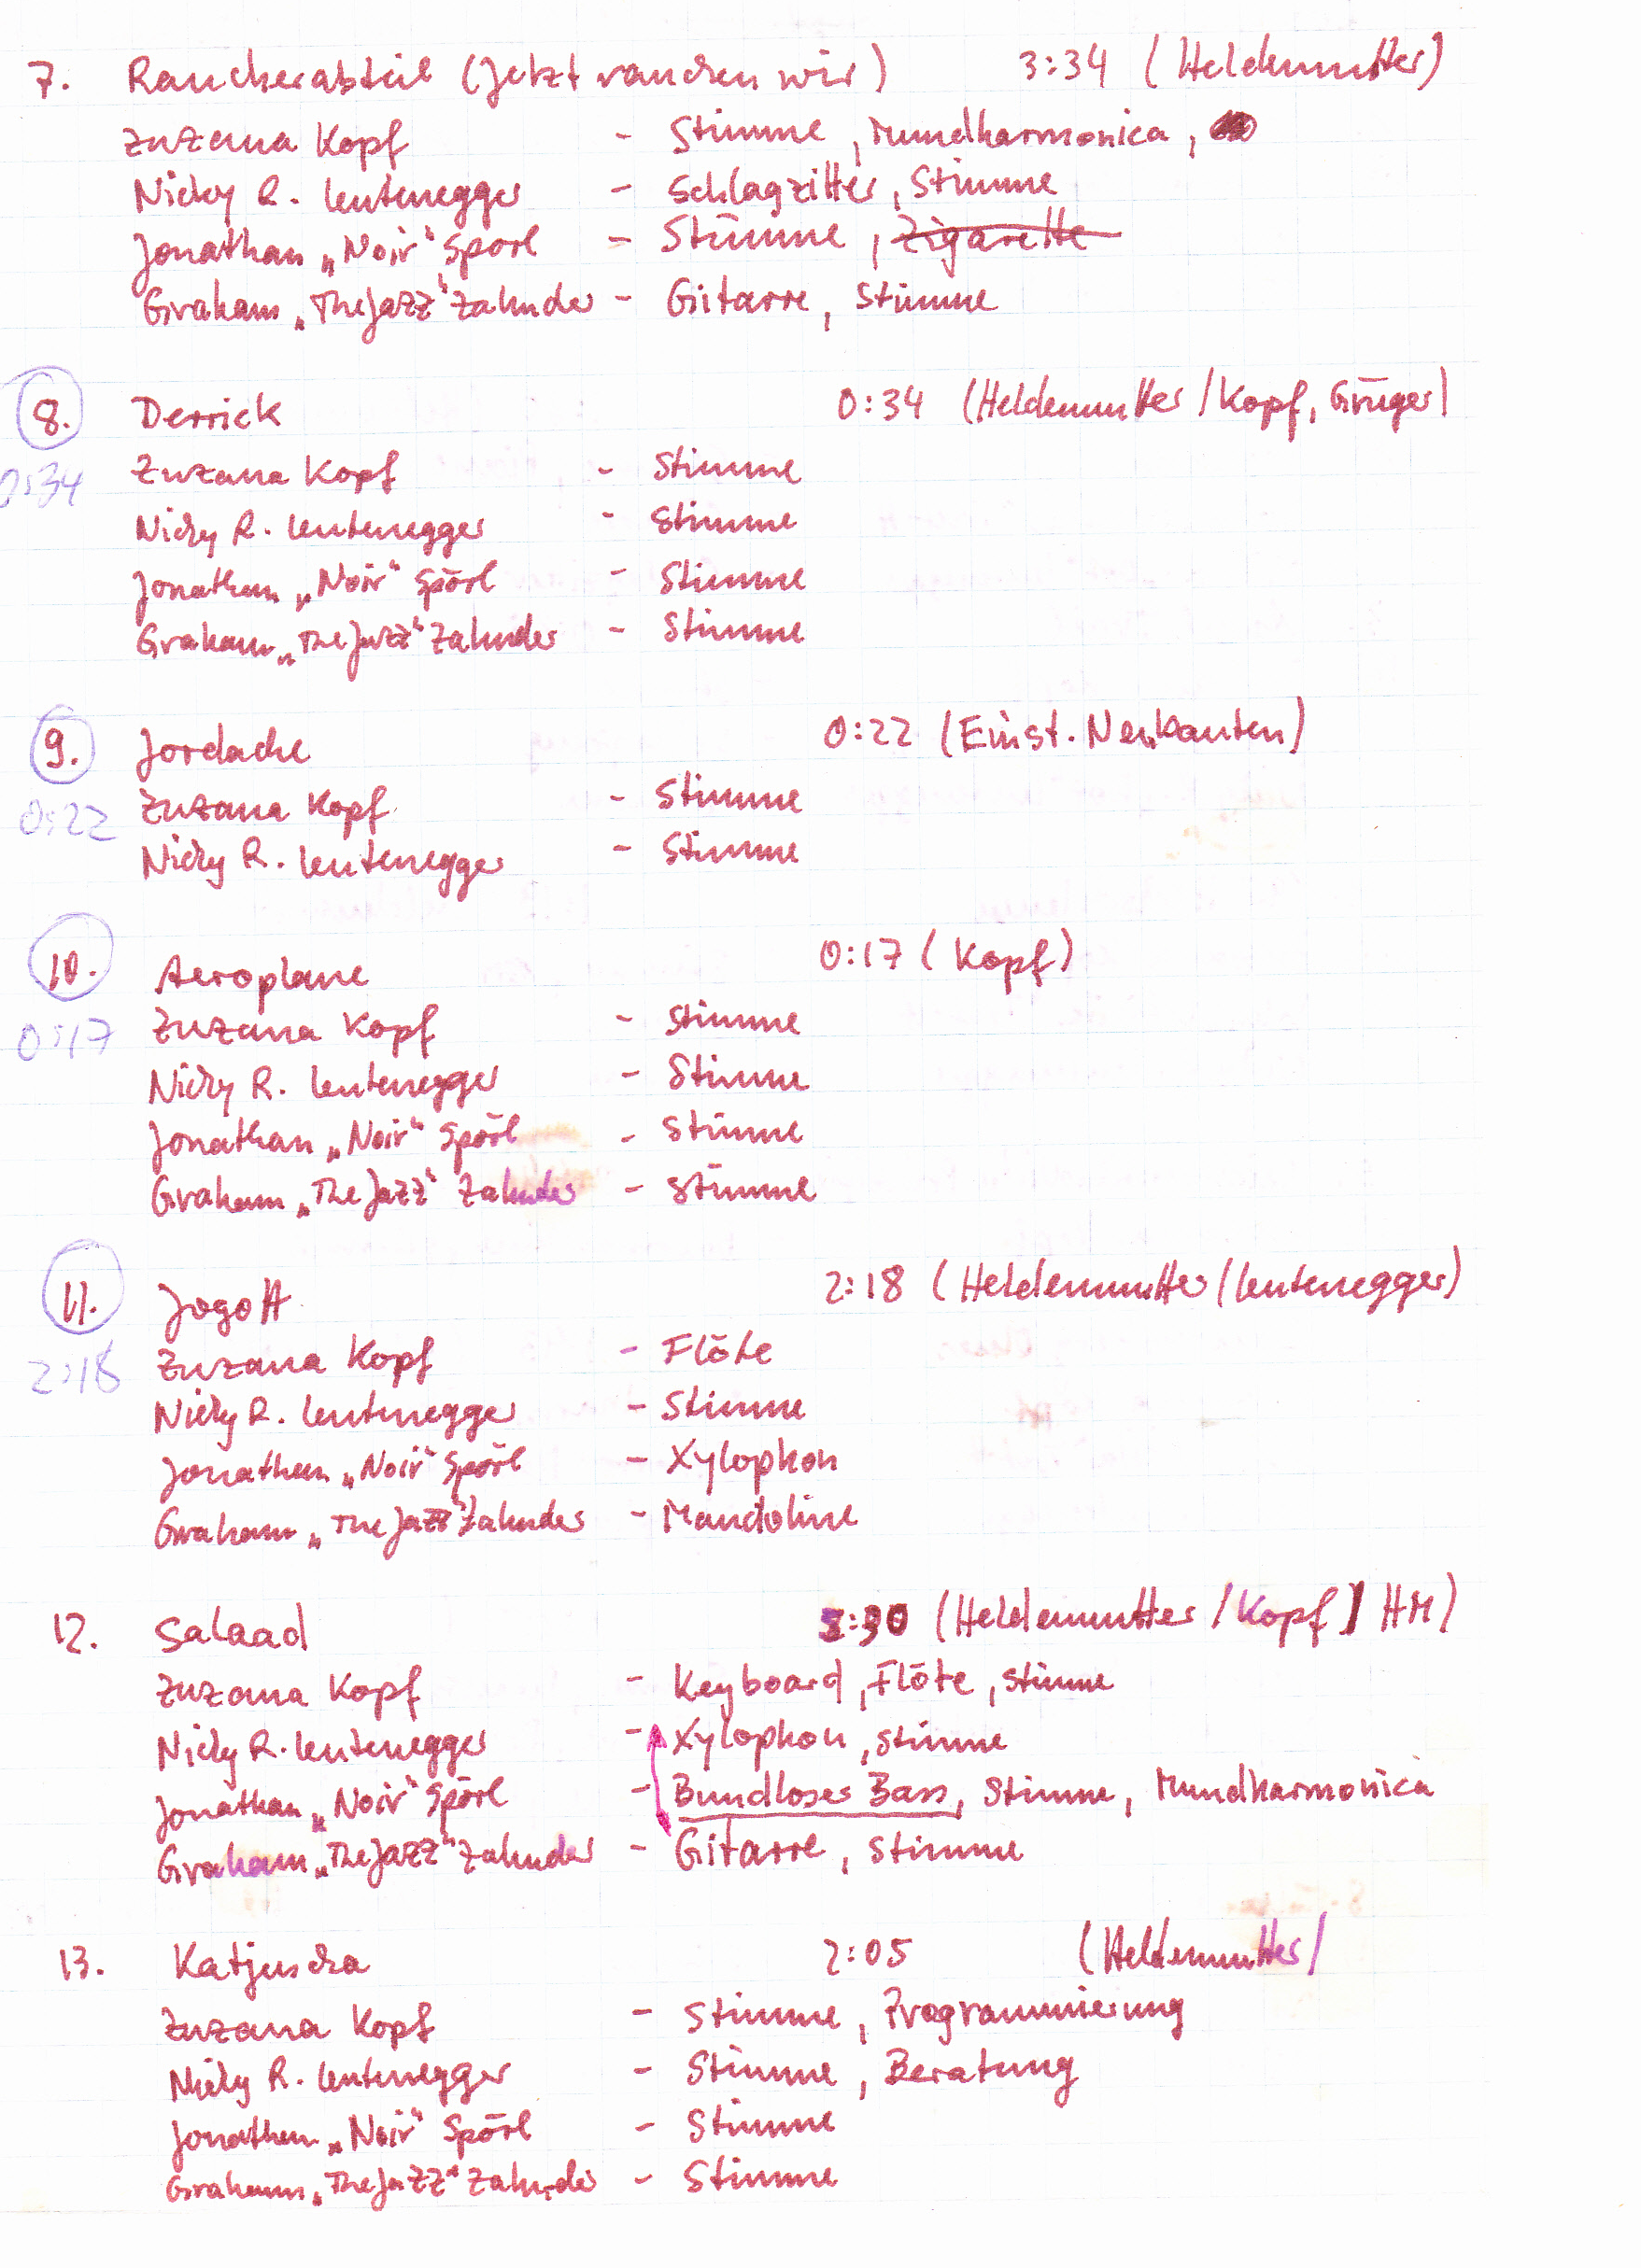 7. Raucherabteil (Jetzt rauchen wir) 3:34 (Heldenmutter)
Zuzana Kopf - Stimme, Mundharmonica,
Nicky R. Leutenegger - Schlagzitter, Stimme
Jonathan „Noir“ Spörl - Stimme, Zigarette
Graham „The Jazz“ Zahnder - Gitarre, Stimme
8. Derrick 0:34 (Heldenmutter / Kopf, Grüger)
0:34
Zuzana Kopf - Stimme
Nicky R. Leutenegger - Stimme
Jonathan „Noir“ Spörl - Stimme
Graham „The Jazz“ Zahnder - Stimme
9. Jordache 0:22 (Einst. Neubauten)
0:22
Zuzana Kopf - Stimme
Nicky R. Leutenegger - Stimme
10. Aeroplane 0:17 (Kopf)
0:17
Zuzana Kopf - Stimme
Nicky R. Leutenegger - Stimme
Jonathan „Noir“ Spörl - Stimme
Graham „The Jazz“ Zahnder - Stimme
11. Jogott 2:18 (Heldenmutter / Leutenegger)
2:18
Zuzana Kopf - Flöte
Nicky R. Leutenegger - Stimme
Jonathan „Noir“ Spörl - Xylophon
Graham „The Jazz“ Zahnder - Mandoline
12. Salaad (Heldenmutter / Kopf / HM)
Zuzana Kopf - Keyboard, Flöte, Stimme
Nicky R. Leutenegger - Xylophon, Stimme
Jonathan „Noir“ Spörl - Bundloses Bass, Stimme, Mundharmonica
Graham „The Jazz“ Zahnder - Gitarre, Stimme
13. Katjuscha 2:05 (Heldenmutter/
Zuzana Kopf - Stimme, Programmierung
Nicky R. Leutenegger - Stimme, Beratung
Jonathan „Noir“ Spörl - Stimme
Graham „The Jazz“ Zahnder - Stimme